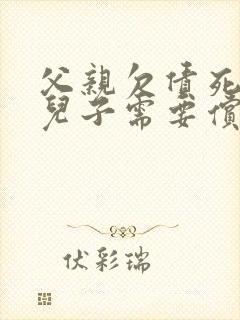 父親欠債死
兒子需要償
伏彩瑞